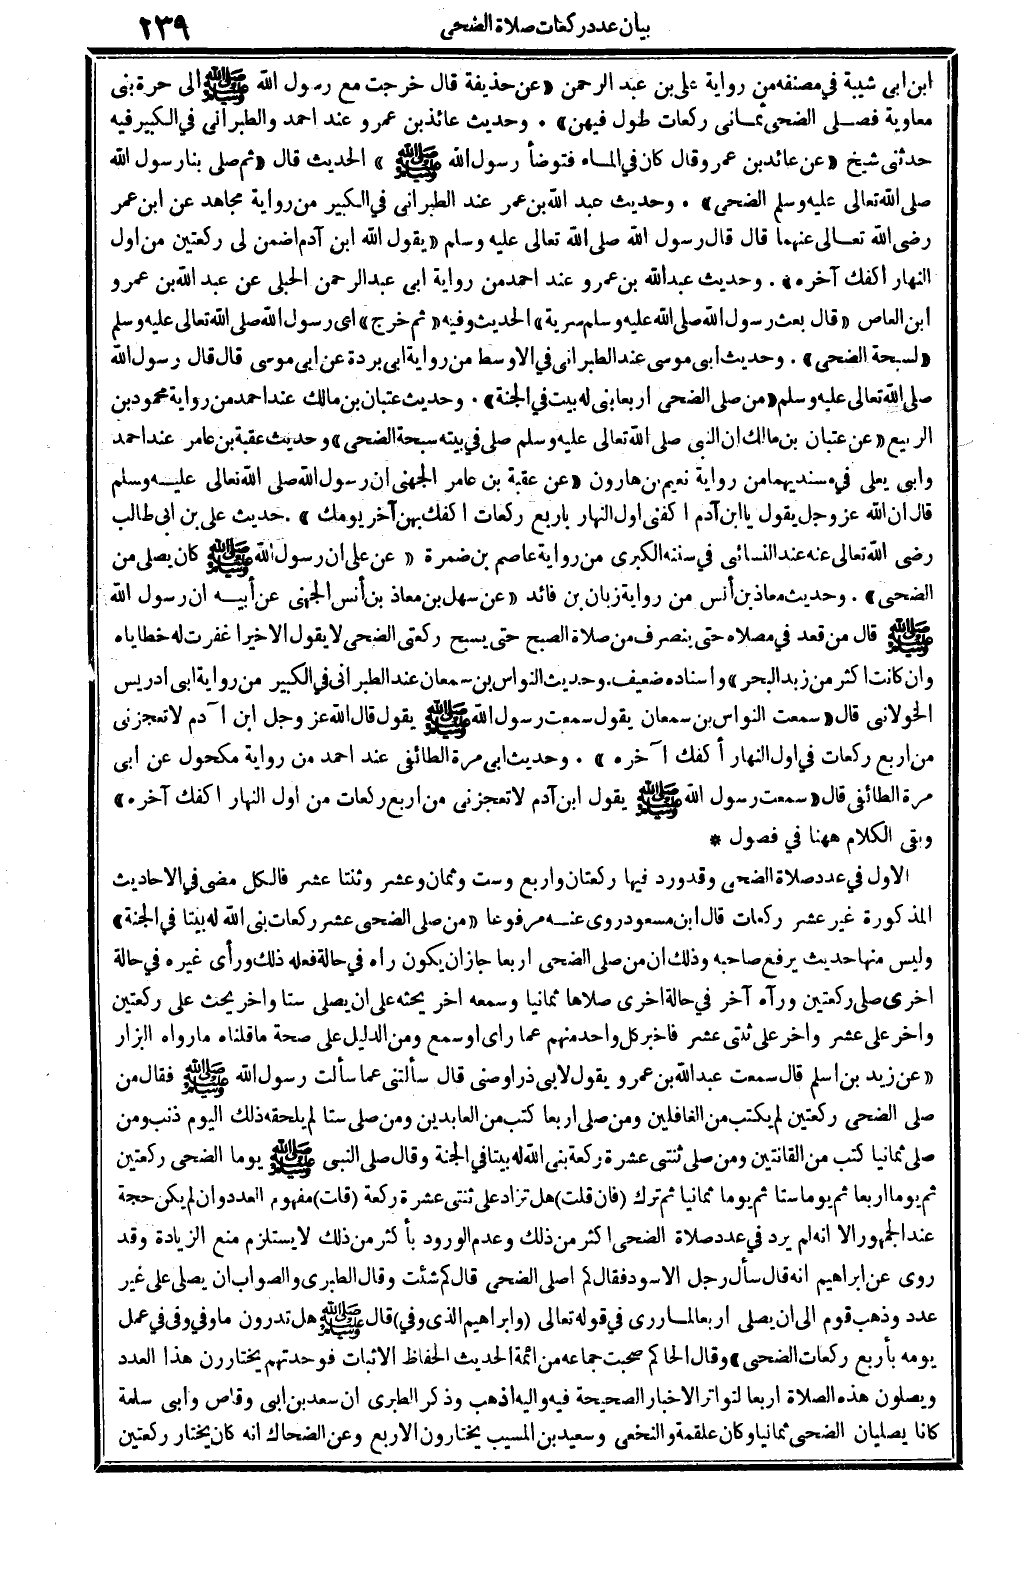 ٢٣٩
بيان عدد ركعات صلاة الضحى
ابن ابى شيبة فى مصنفه من رواية على بن عبد الرحمن «عن حذيفة قال خرجت مع رسول الله ﷺ الى حرة بنى
معاوية فصلى الضحى ثمانى ركعات طول فيهن» . وحديث عائذ بن عمرو عند احمد والطبرانى فى الكبير فيه
حدثنى شيخ «عن عائد بن عمرو قال كان فى الماء فتوضأ رسول الله ﷺ » الحديث قال «ثم صلى بنا رسول الله
صلى الله تعالى عليه وسلم الضحى» . وحديث عبد الله بن عمر عند الطبرانى فى الكبير من رواية مجاهد عن ابن عمر
رضى الله تعالى عنهما قال قال رسول الله صلى الله تعالى عليه وسلم «يقول الله ابن آدم اضمن لى ركعتين من اول
النهار أكفك آخره» . وحديث عبدالله بن عمرو عند احمد من رواية ابى عبدالرحمن الحبلى عن عبد الله بن عمرو
ابن العاص «قال بعث رسول الله صلى الله عليه وسلم سرية» الحديث وفيه «ثم خرج» اى رسول الله صلى الله تعالى عليه وسلم
«لسبحة الضحى» . وحديث ابى موسى عند الطبرانى فى الاوسط من رواية ابى بردة عن ابى موسى قال قال رسول الله
صلى الله تعالى عليه وسلم «من صلى الضحى اربعا بنى له بيت فى الجنة» . وحديث عتبان بن مالك عند احمد من رواية محمود بن
الربيع «عن عتبان بن مالك ان النبى صلى الله تعالى عليه وسلم صلى فى بيته سبحة الضحى» وحديث عقبة بن عامر عند احمد
وابى يعلى فى مسنديهما من رواية نعيم بن هارون «عن عقبة بن عامر الجهنى ان رسول الله صلى الله تعالى عليه وسلم
قال ان الله عز وجل يقول يا ابن آدم اكفنى اول النهار باربع ركعات اكفك بهن آخر يومك » . حديث على بن ابى طالب
رضى الله تعالى عنه عند النسائى فى سننه الكبرى من رواية عاصم بن ضمرة « عن على ان رسول الله ﷺ كان يصلى من
الضحى» . وحديث معاذ بن أنس من رواية زبان بن فائد «عن سهل بن معاذ بن أنس الجهنى عن أبيه ان رسول الله
ﷺ قال من قعد فى مصلاه حتى ينصرف من صلاة الصبح حتى يسبح ركعتى الضحى لا يقول الا خيرا غفرت له خطاياه
وان كانت اكثر من زبد البحر» واسناده ضعيف. وحديث النواس بن سمعان عند الطبرانى فى الكبير من رواية ابى ادريس
الخولانى قال «سمعت النواس بن سمعان يقول سمعت رسول الله ﷺ يقول قال الله عز وجل ابن آدم لا تعجزنى
من اربع ركعات فى اول النهار أكفك آخره » . وحديث ابى مرة الطائفى عند احمد من رواية مكحول عن ابى
مرة الطائفى قال «سمعت رسول الله ﷺ يقول ابن آدم لا تعجزنى من اربع ركعات من اول النهار اكفك آخره»
وبقى الكلام ههنا فى فصول *
الاول فى عدد صلاة الضحى وقد ورد فيها ركعتان واربع وست وثمان وعشر وثنتا عشر فالكل مضى فى الاحاديث
المذكورة غير عشر ركعات قال ابن مسعود روى عنه مرفوعا «من صلى الضحى عشر ركعات بنى الله له بيتا فى الجنة»
وليس منها حديث يرفع صاحبه وذلك ان من صلى الضحى اربعا جاز ان يكون رآه فى حالة فعله ذلك ورأى غيره فى حالة
اخرى صلى ركعتين ورآه آخر فى حالة اخرى صلاها ثمانيا وسمعه اخر يحثه على ان يصلى ستا واخر يحث على ركعتين
واخر على عشر واخر على ثنتى عشر فاخبر كل واحد منهم عما راى او سمع ومن الدليل على صحة ما قلناه ما رواه البزار
«عن زيد بن اسلم قال سمعت عبد الله بن عمرو يقول لابى ذر اوصنى قال سألتنى عما سألت رسول الله ﷺ فقال من
صلى الضحى ركعتين لم يكتب من الغافلين ومن صلى اربعا كتب من العابدين ومن صلى ستا لم يلحقه ذلك اليوم ذنب ومن
صلى ثمانيا كتب من القانتين ومن صلى ثنتى عشرة ركعة بنى الله له بيتا فى الجنة وقال صلى النبى ﷺ يوما الضحى ركعتين
ثم يوما اربعا ثم يوما ستا ثم يوما ثمانيا ثم ترك (فان قلت) هل تزاد على ثنتى عشرة ركعة (قات) مفهوم العدد وان لم يكن حجة
عند الجمهور الا انه لم يرد فى عدد صلاة الضحى اكثر من ذلك وعدم الورود بأكثر من ذلك لا يستلزم منع الزيادة وقد
روى عن ابراهيم انه قال سأل رجل الاسود فقال كم اصلى الضحى قال كم شئت وقال الطبرى والصواب ان يصلى على غير
عدد وذهب قوم الى ان يصلى اربعا لما روى فى قوله تعالى (وابراهيم الذى وفى) قال ﷺ هل تدرون ما وفى وفى فى عمل
يومه بأربع ركعات الضحى» وقال الحاكم صحبت جماعه من ائمة الحديث الحفاظ الاثبات فوجدتهم يختارون هذا العدد
ويصلون هذه الصلاة اربعا لتواتر الاخبار الصحيحة فيه واليه اذهب وذكر الطبرى ان سعد بن ابى وقاص وابى سلمة
كانا يصليان الضحى ثمانيا وكان علقمة والنخعى وسعيد بن المسيب يختارون الاربع وعن الضحاك انه كان يختار ركعتين